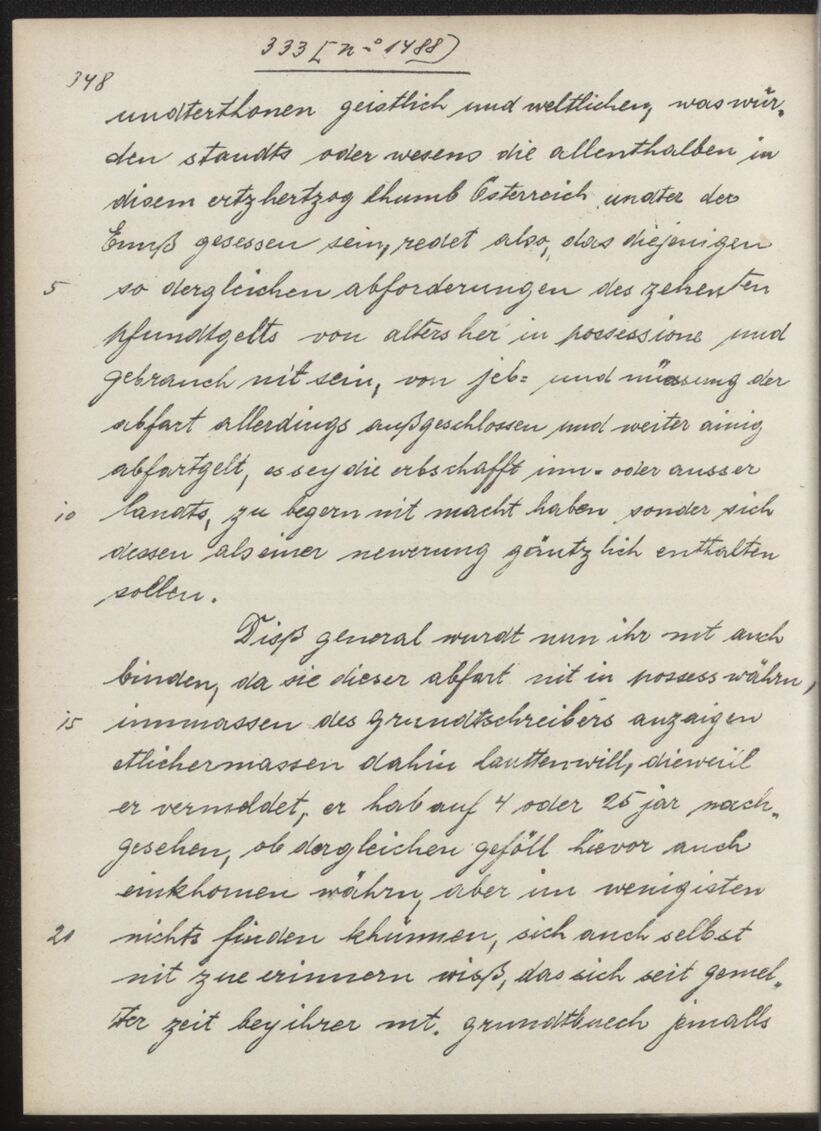 333 [n-o 1488)
348
undterthonen geistlich und weltlichen, was wür-
den standts oder wesens die allenthalben in
disem ertzhertzogthumb Österreich undter der
Ennß gesessen sein, redet also, das diejenigen
5 so dergleichen abforderungen des zehenten
pfundtgelts von alters her in possessione und
gebrauch nit sein, von jeb- und nüessung der
abfart allerdings außgeschlossen und weiter ainig
abfartgelt, es sey die erbschafft inn- oder ausser
10 landts, zu begern nit macht haben sonder sich
dessen als einer newerung gäntzlich enthalten
sollen.
Disß general wurdt nun ihr mt auch
binden, da sie dieser abfart nit in possess währn,
15 inmmassen des grundtschreibers anzaigen
etlichermassen dahin lautten will, dieweiil
er vermeldet, er hab auf 4 oder 25 jar nach-
gesehen, ob dergleichen geföll hievor auch
einkhomen währn, aber im wenigisten
20 nichts finden khünnen, sich auch selbst
nit zue erinnern wisß, das sich seit gemel-
ter zeit bey ihrer mt. grundtbuech jemalls